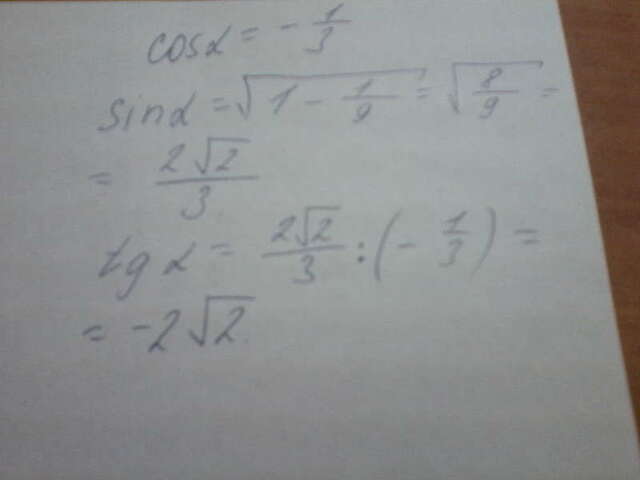 cosα = - 1/3
sinα = √(1 - 1/9) = √(8/9) =
= 2√2/3
tg α = 2√2/3 : (- 1/3) =
= -2√2